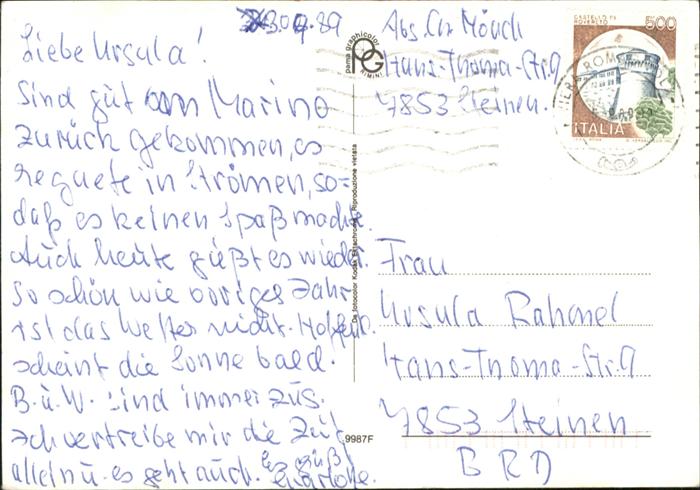 30.9.89
Liebe Ursula!
Sind gut von Marino
zurück gekommen, es
regnete in Strömen, so=
daß es keinen Spaß machte.
Auch heute gießt es wieder.
So schön wie voriges Jahr
ist das Wetter nicht. Hoffentl.
scheint die Sonne bald.
B. u. W. sind immer zus.
Ich vertreibe mir die Zeit
allein u. es geht auch. Es grüßt
Abs. Ch. Mönch
Hans-Thoma-Str. 9
7853 Steinen.
Frau
Ursula
Hans-Thoma-Str. 9
7853 Steinen
BRD
pama graphicolor
PG
RIMINI
De fotocolor Kodak Ektachrome Riproduzione vietata
9987F
CASTELLO DI
ROVERETO
500
ITALIA